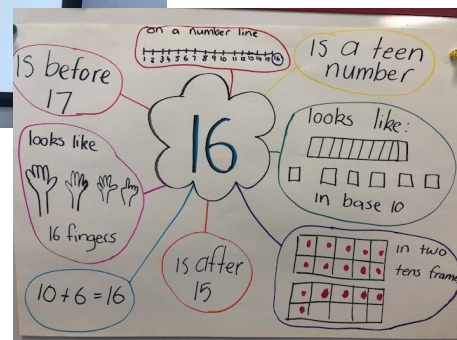 on a number line
1 2 3 4 5 6 7 8 9 10 11 12 13 14 15 16
is a teen
number
is before
17
16
looks like:
in base 10
looks like
16 fingers
in two
tens frame
is after
15
10+6=16